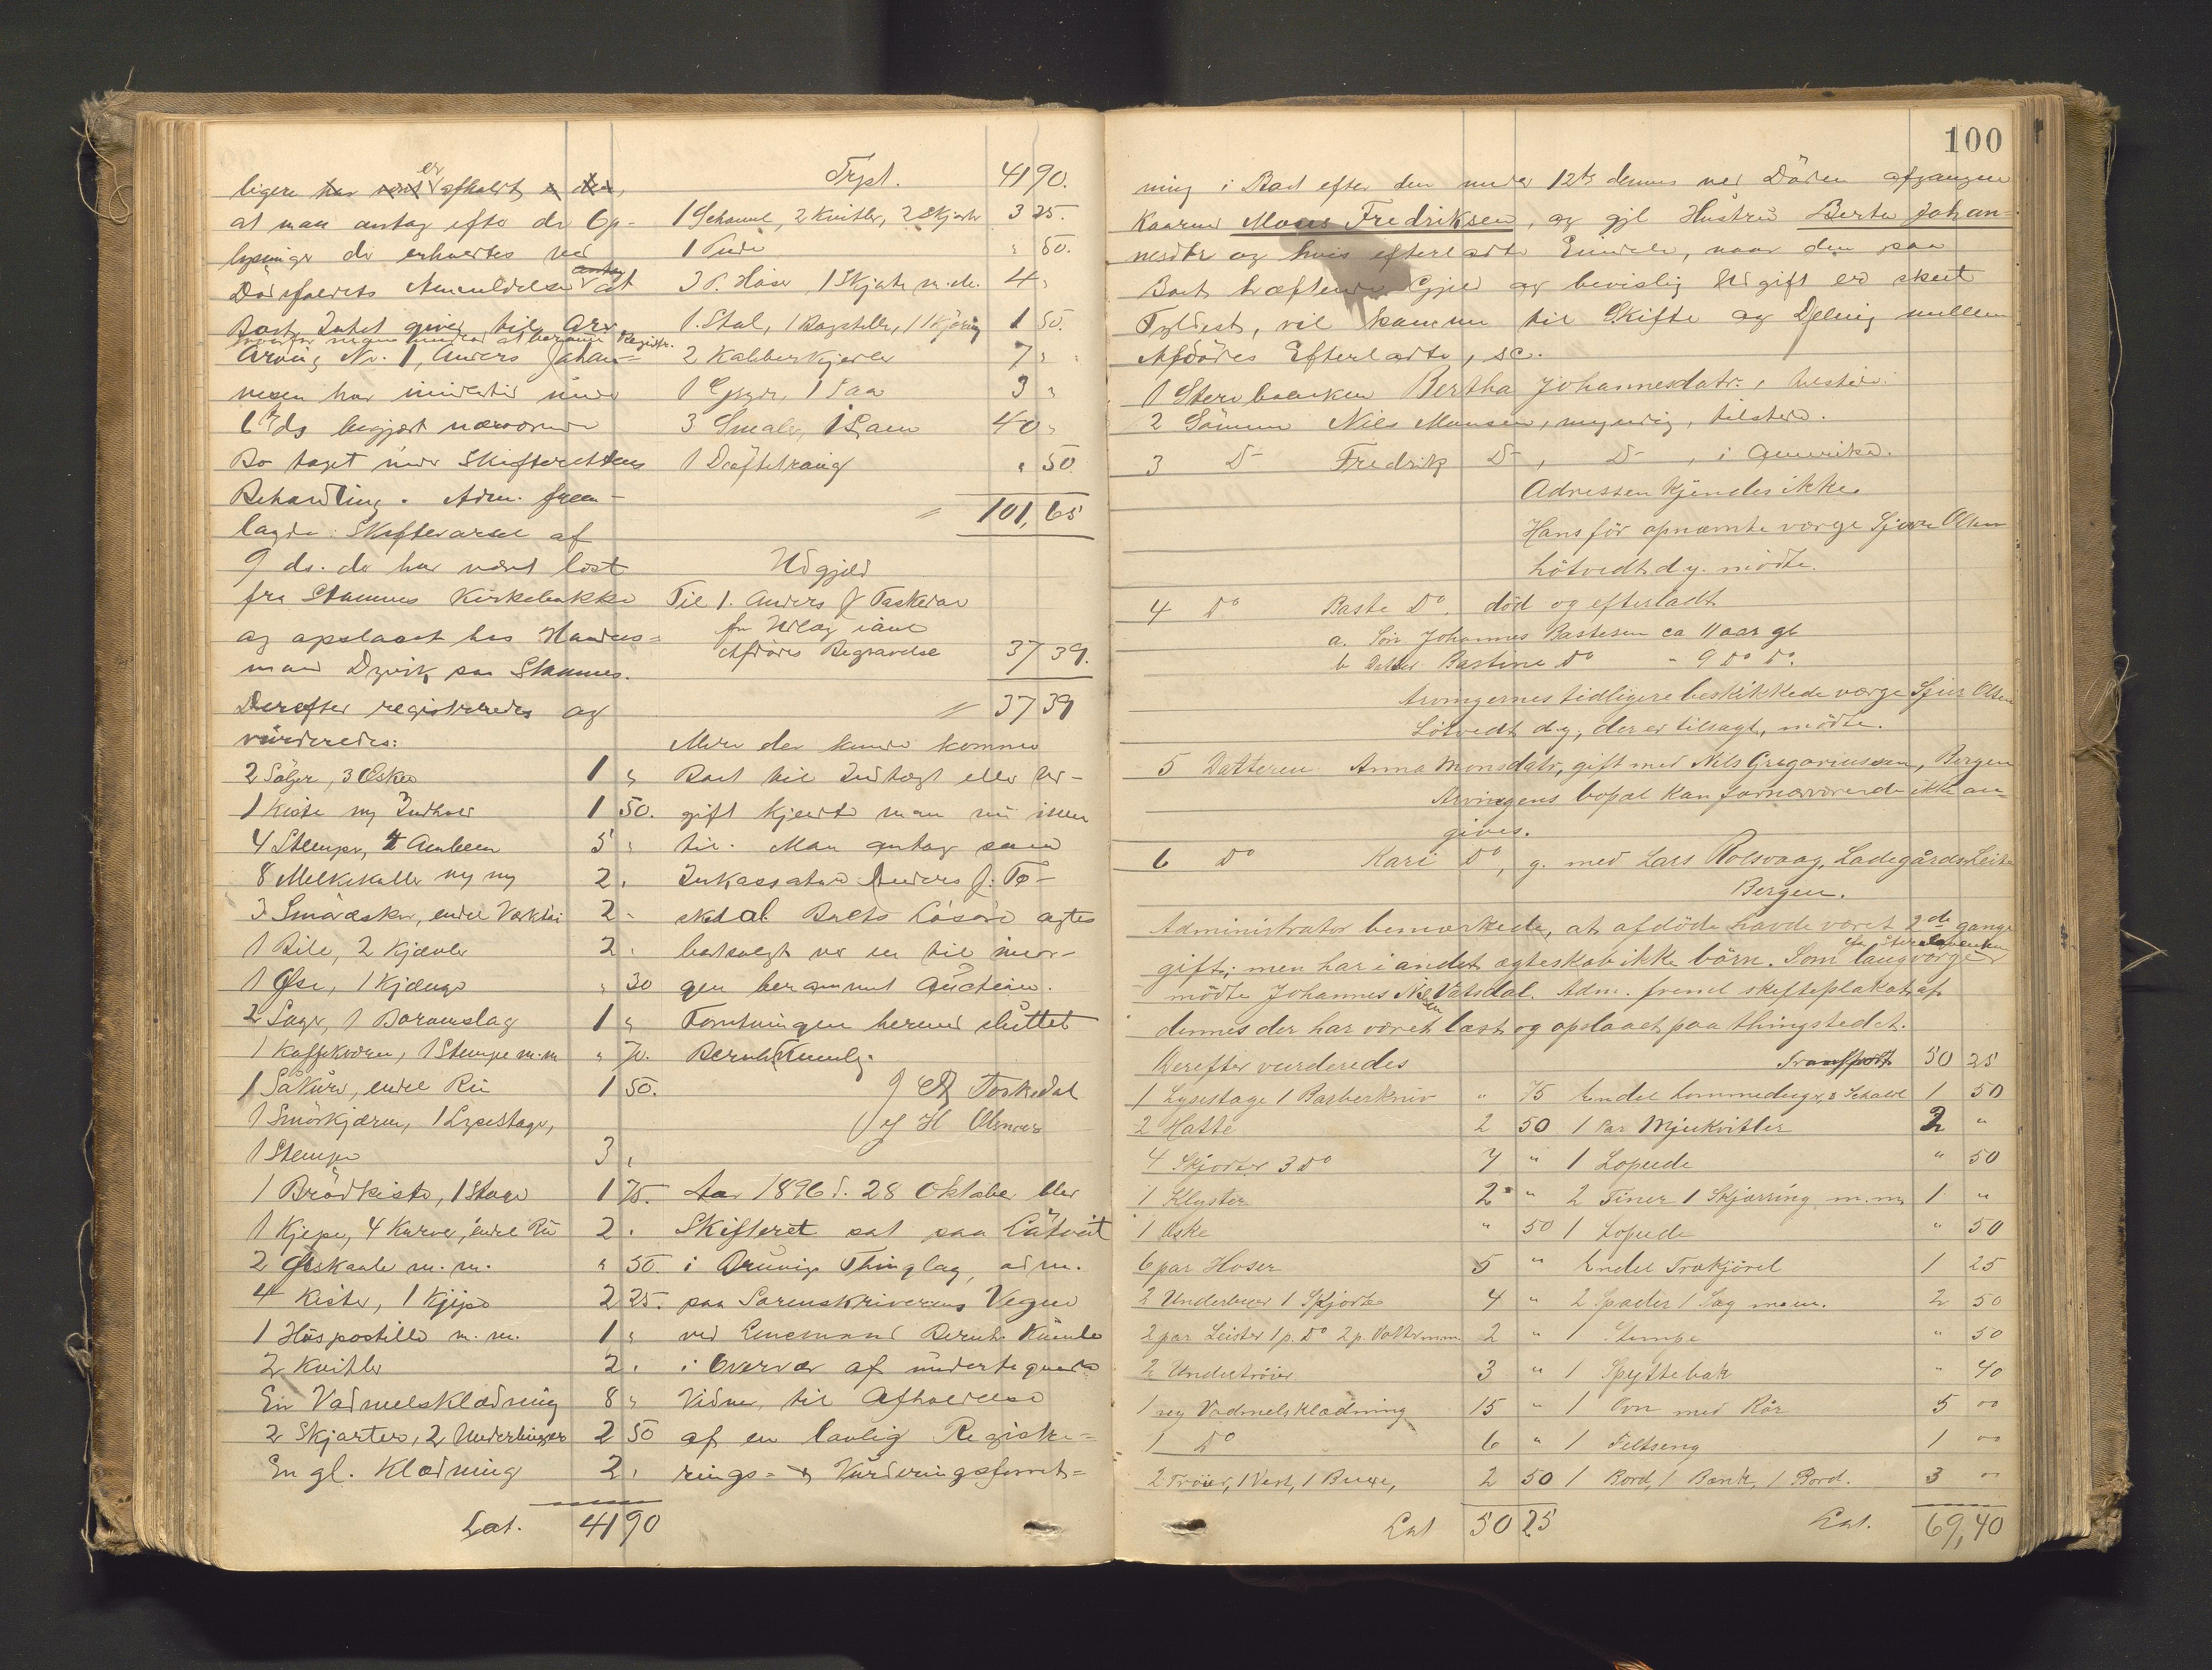 ligere har været er afholdt,
at man antog efter de Op-
lysninger der erhvertes ved
Dødsfaldets Anmeldelse at
Boet Intet giver til Arv
Arving No. 1, Anders Johan-
nesen har imidlertid under
6te ds begjært nærværende
Bo taget under Skifterettens
Behandling. Adm. frem-
lagde Skiftevarsel af
9 ds. der har været læst
fra Stamnes Kirkebakke
og opslaaet hos Handels-
mand Dyvik paa Stamnes.
Derefter registreredes og
vurderedes:
2 Søljer, 3 Æsker 1 "
1 Kiste m/ Indhold 1 50.
4 Stemper, 4 Ambeer 5 "
8 Melkekoller m/m 2 "
3 Smaaæsker, endel Værktøi 2 -
1 Bile, 2 Kjævler 2 "
1 Øse, 1 Kjænge " 30
2 Sager, 1 Boromslag 1 "
1 Kaffekværn, 1 Stempe m.m " 70.
1 Såkurv, endel Rú 1 50.
1 Smørkjærn, 1 Lysestage,
1 Stempe 3 "
1 Brødkiste, 1 Stage 1 75.
1 Kjepe, 4 Kurve, endel Rú 2 "
2 Ølskaale m.m. " 50.
4 Kister, 1 Kjipe 2 25.
1 Huspostille m.m. 1 "
2 Kvitler 2 "
En Vadmelsklædning 8 "
2 Skjorter, 2 Underbuxer 2 50
En gl. Klædning 2 "
Lat. 41 90
Trpt. 41 90.
1 Schavel, 2 Kvitler, 2 Skjorter 3 25.
1 Pude " 50.
3 P. Hoser, 1 Skjorte m.m. 4 "
1 Stol, 1 Bogstille, 1 Skjæring 1 50.
2 Kobberkjedler 7 "
1 Gryde, 1 Saa 3 "
3 Smaler, 1 Lam 40 "
1 Drøftetraug " 50
= 101,65
Udgjæld
Til 1. Anders J Taskedal
for Udlæg ianl
Afdødes Begravelse 37 39.
= 37 39
Mere der kunde komme
Boet til Indtægt eller Ud-
gift kjendte man nu ikke
til. Man antog som
Inkassator Anders J. Ta-
skedal Boets Løsøre agtes
bortsolgt ved en til imor-
gen berammet Auction.
Forretningen hermed sluttet
Bernh Kumle.
J A Taskedal
H Olsnes
Aar 1896 d. 28 Oktober blev
Skifteret sat paa Låtveit
i Bruvig Thinglag, adm.
paa Sorenskriverens Vegne
ved Lensmand Bernh. Kumle
i Overvær af undertegnede
Vidner, til Afholdelse
af en lovlig Registre-
rings- & Vurderingsforret-
100
ning i Boet efter den under 12te dennes ved Døden afgangne
Kaarmd Mons Fredriksen, og gjl Hustru Berte Johan-
nesdtr og hvis efterladte Eiendele, naar den paa
Boet hæftende Gjæld og bevislig Udgift er skeet
Fyldest, vil komme til Skifte og Deling mellem
Afdødes Efterladte, sc.
1 Stervboenken Bertha Johannesdatr. tilstede.
2 Sønnen Nils Monsen, myndig, tilstede.
3 D- Fredrik D-, D-, i Amerika.
Adressen kjendes ikke.
Hans før opnævnte værge Sjur Olsen
Løtvedt d.y. mødte.
4 Do Baste Do. død og efterladt
a. Søn Johannes Bastesen ca 11 aar gl
b Datter Bastine Do " 9 Do Do.
Arvingernes tidligere beskikkede værge Sjur Olsen
Løtvedt d.y, der er tilsagt, mødte.
5 Datteren Anna Monsdatr, gift med Nils Gregoriussen, Bergen
Arvingens bopæl kan fornærværende ikke an-
gives.
6 Do Kari Do, g. med Lars Rolsvaag, Ladegårds Leite
Bergen.
Administrator bemærkede, at afdøde havde været 2de gange
gift; men har i andet ægteskab ikke børn. Som laugværge for Stervboenken
mødte Johannes Nilsen Vatsdal. Adm. freml skifteplakat af
dennes der har været læst og opslaaet paa thingstedet.
Derefter vurderedes Transport 50 25
1 Lysestage 1 Barberkniv " 75 Endel Lommeduger, 3 Schavl 1 50
2 Hatte 2 50 1 Par Mjukvitler 2 "
4 Skjorter 3 Do 7 " 1 Lopude " 50
1 Klyster 2 " 2 Tiner 1 Skjærring m.m 1 "
1 Æske " 50 1 Lopude " 50
6 par Hoser 5 " Endel Trækjørel 1 25
2 Underbuxer 1 Skjorte 4 " 2 Spader 1 Sag m.m. 2 50
2 par Leister 1 p. Do 2 p. Votter m.m. 2 " 1 Stempe " 50
2 Undertrøier 3 " 1 Spyttebak " 40
1 ny Vadmelsklædning 15 " 1 Ovn med Rør 5 "
1 Do 6 " 1 Feltseng 1 "
2 Trøier, 1 Vest, 1 Buxe, 2 50 1 Bord, 1 Bænk, 1 Bord. 3 "
Lat 50 25 Lat. 69,40